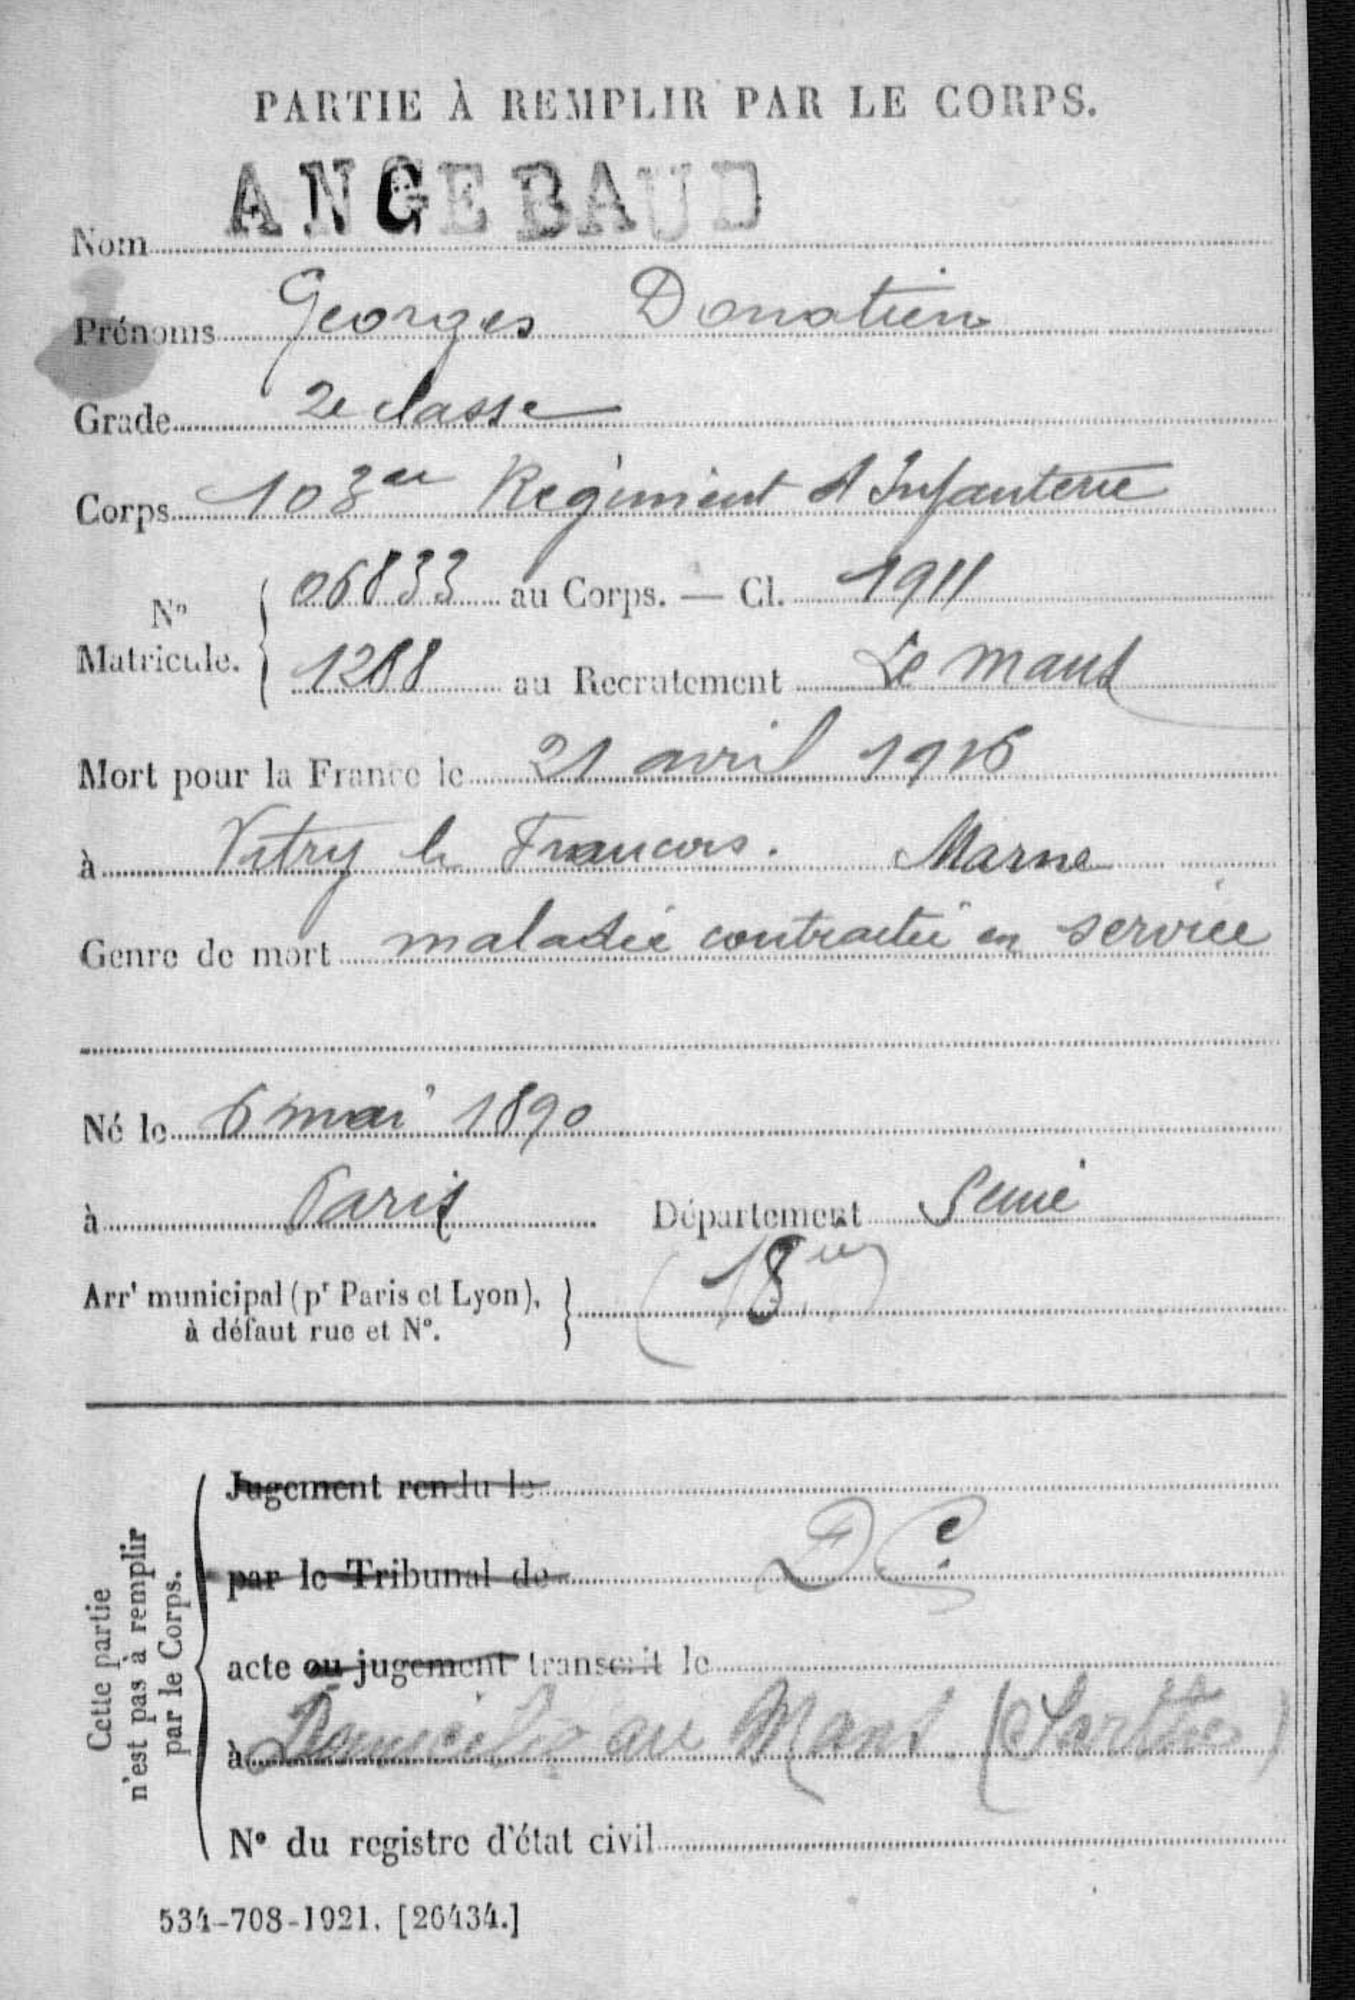 PARTIE À REMPLIR PAR LE CORPS.
Nom ANGEBAUD
Prénoms Georges Donatien
Grade 2e classe
Corps 103em Régiment d'Infanterie
N° Matricule. 06833 au Corps. — Cl. 1911
1288 au Recrutement Le Mans
Mort pour la France le 21 avril 1916
à Vitry le Francois. Marne
Genre de mort maladie contractée en service
Né le 6 mai 1890
à Paris Département Seine
Arrt municipal (pr Paris et Lyon), à défaut rue et N°. (18em)
Cette partie n'est pas à remplir par le Corps.
Jugement rendu le
par le Tribunal de
DC
acte ou jugement transcrit le
à Domicilié au Mans (Sarthe)
N° du registre d'état civil
534-708-1921. [26434.]